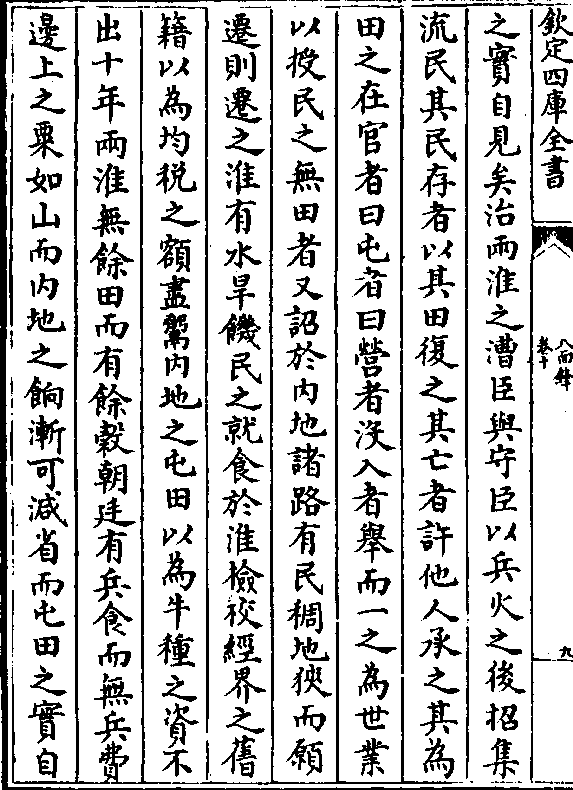 欽定四庫全書
八面鋒
卷十
九
之實自見矣治兩淮之漕臣與守臣以兵火之後招集
流民其民存者以其田復之其亡者許他人承之其為
田之在官者曰屯者曰營者沒入者舉而一之為世業
以授民之無田者又詔於内地諸路有民稠地狹而願
遷則遷之淮有水旱饑民之就食於淮檢校經界之舊
籍以為均税之額盡鬻内地之屯田以為牛種之資不
出十年兩淮無餘田而有餘穀朝廷有兵食而無兵費
邊上之粟如山而内地之餉漸可減省而屯田之實自